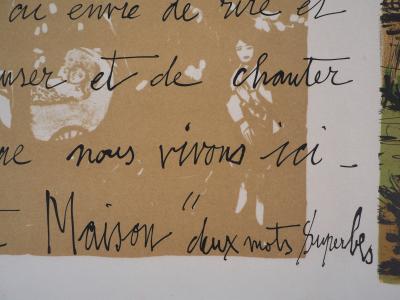 ai envie de rire et
nser et de chanter
ue nous vivons ici -
t Maison" deux mots superbes